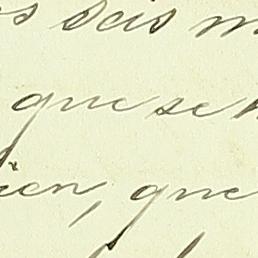 s dois m
que se
ien, que